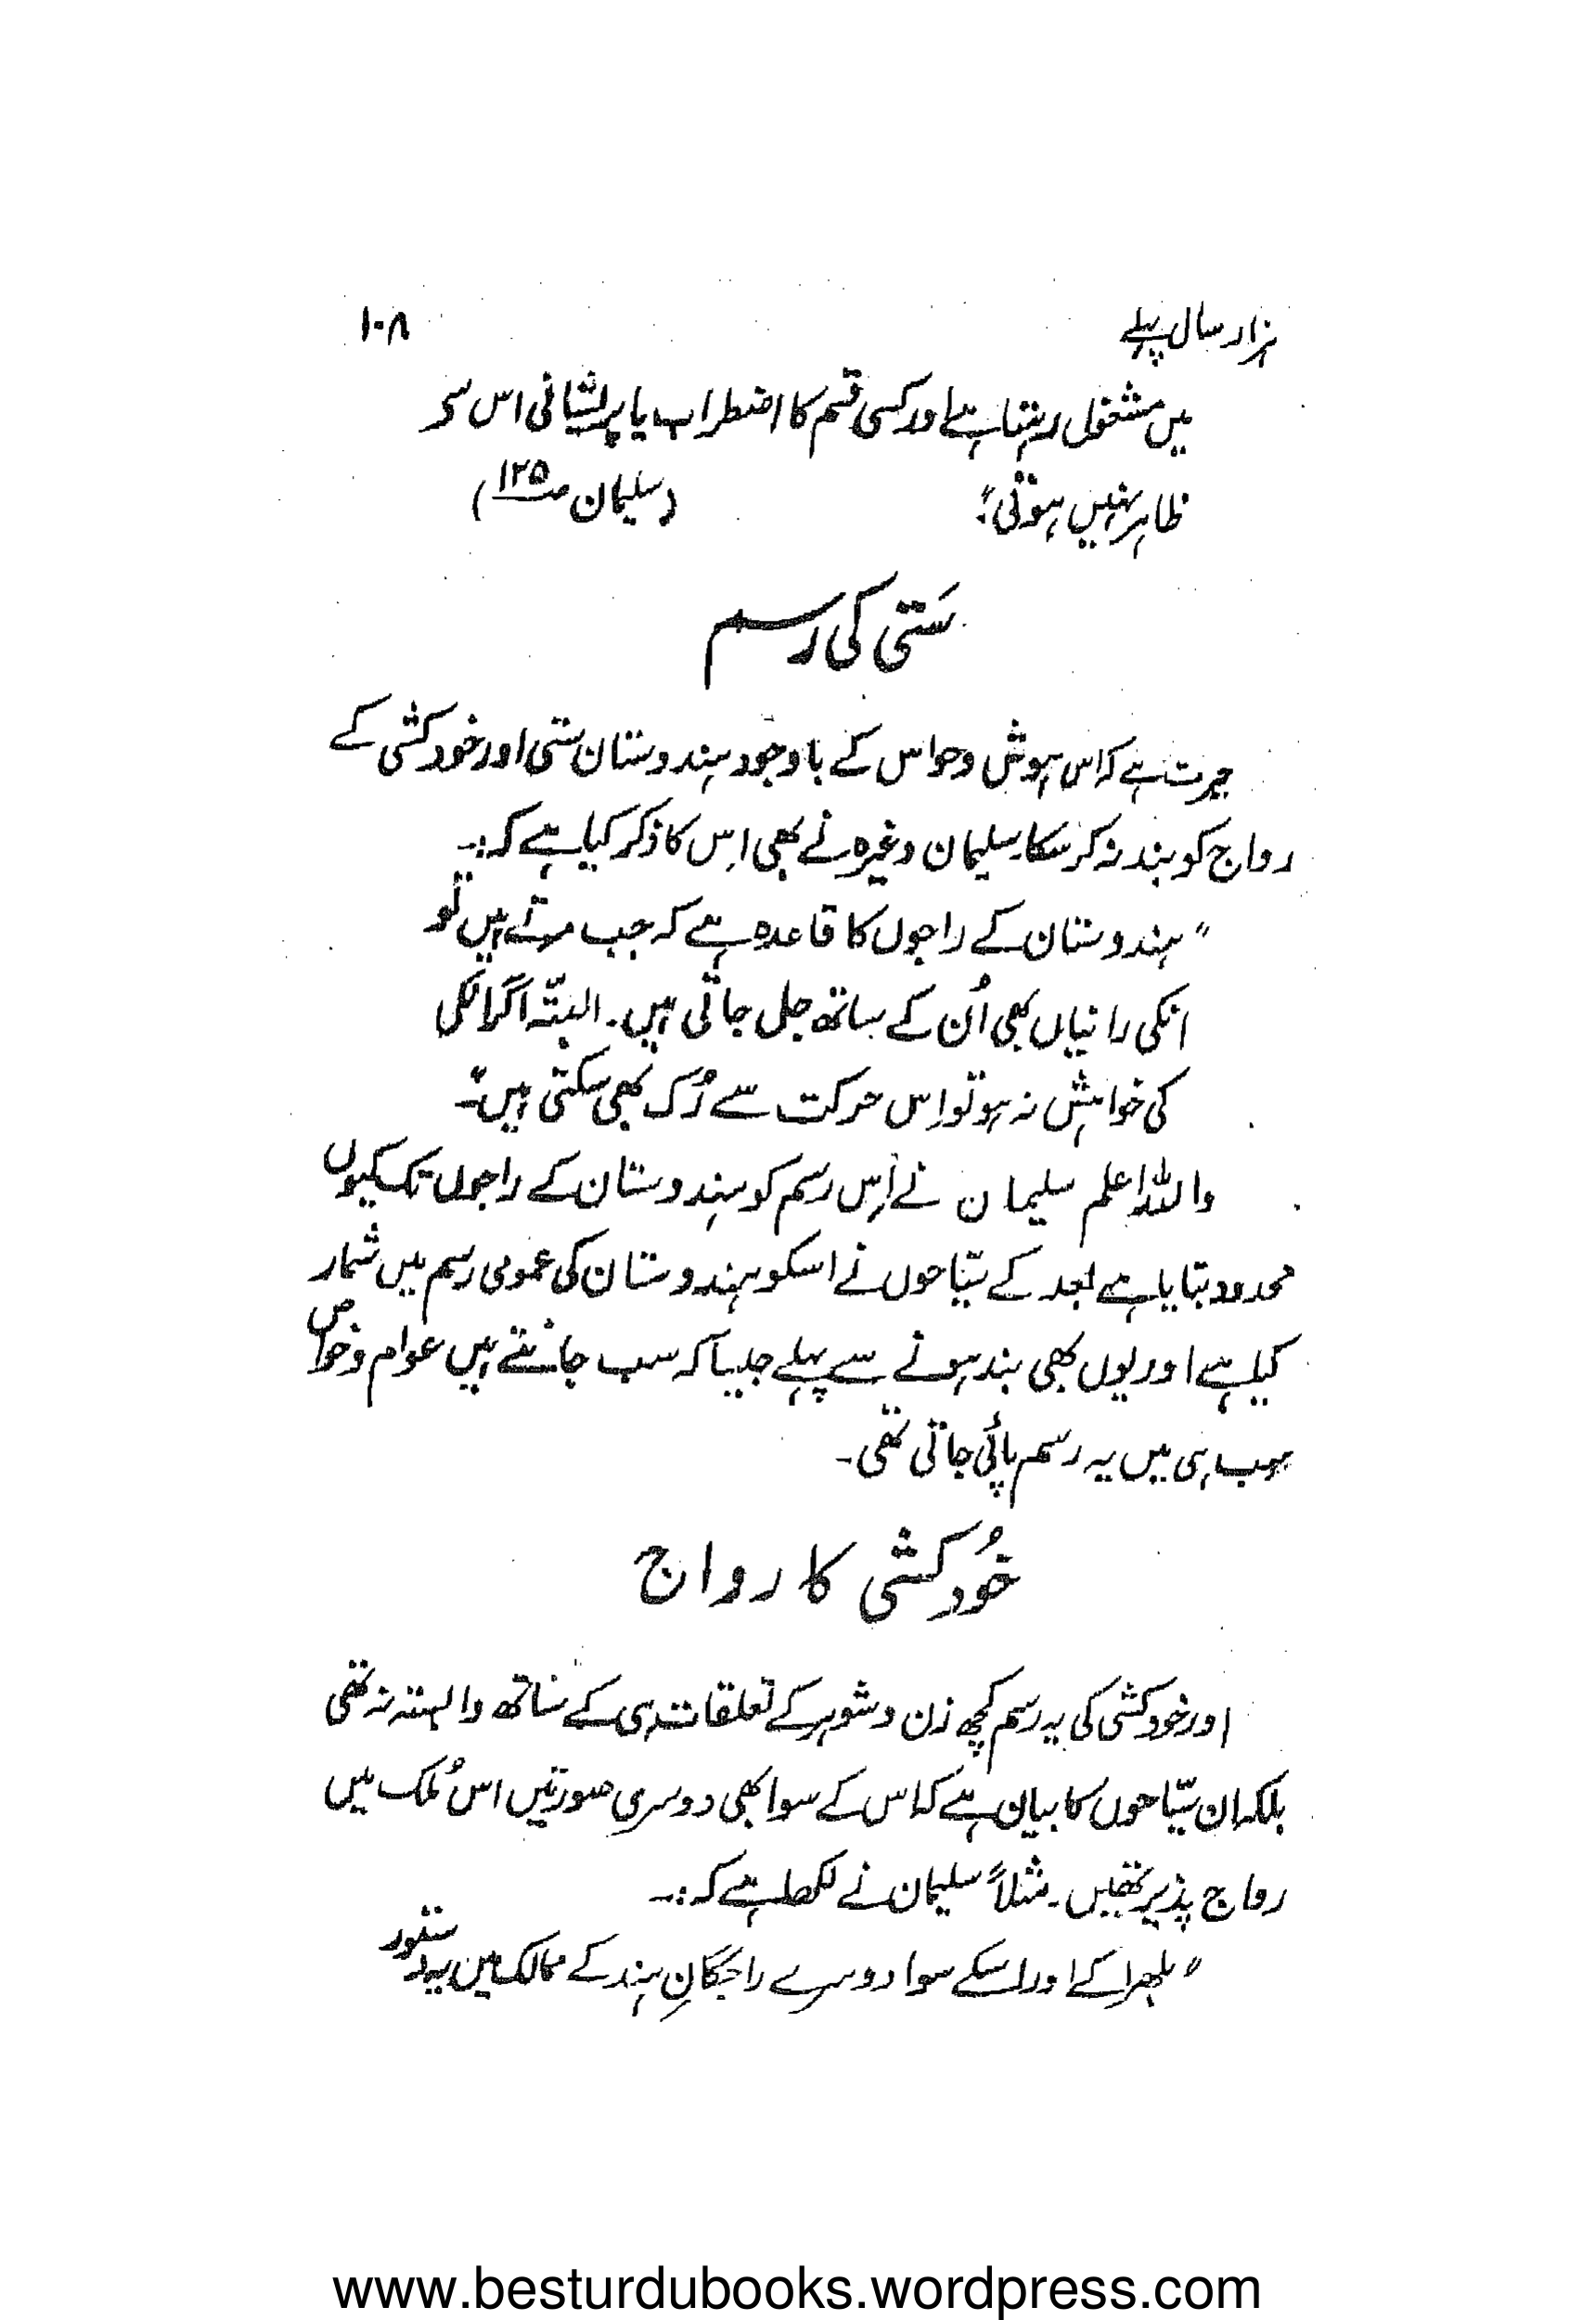 ہزار سال پہلے ۱۰۸
میں مشغول رہتا ہے اور کسی قسم کا اضطراب یا پریشانی اس سے
ظاہر نہیں ہوتی؛" (سلیمان صـ ۱۲۵)
سَتی کی رسم
حیرت ہے کہ اس ہوش و حواس کے باوجود ہندوستان ستی اور خودکشی کے
رواج کو بند نہ کر سکا۔ سلیمان وغیرہ نے بھی اِس کا ذکر کیا ہے کہ:۔
"ہندوستان کے راجوں کا قاعدہ ہے کہ جب مرتے ہیں تو
انکی رانیاں بھی اُن کے ساتھ جل جاتی ہیں۔ البتّہ اگر انکی
کی خواہش نہ ہو تو اِس حرکت سے رُک بھی سکتی ہیں"۔
واللہ اعلم سلیمان نے اِس رسم کو ہندوستان کے راجوں تک کیوں
محدود بتایا ہے بعد کے سیّاحوں نے اسکو ہندوستان کی عمومی رسم میں شمار
کیا ہے اور یوں بھی بند ہونے سے پہلے جیسا کہ سب جانتے ہیں عوام و خواص
سب ہی میں یہ رسم پائی جاتی تھی۔
خُودکشی کا رواج
اور خودکشی کی یہ رسم کچھ زن و شوہر کے تعلقات ہی کے ساتھ وابستہ نہ تھی
بلکہ ان سیّاحوں کا بیان ہے کہ اس کے سوا بھی دوسری صورتیں اس مُلک میں
رواج پذیر تھیں۔ مثلاً سلیمان نے لکھا ہے کہ:۔
"بلھرا کے اور اسکے سوا دوسرے راجگانِ ہند کے ممالک میں یہ دستور
www.besturdubooks.wordpress.com